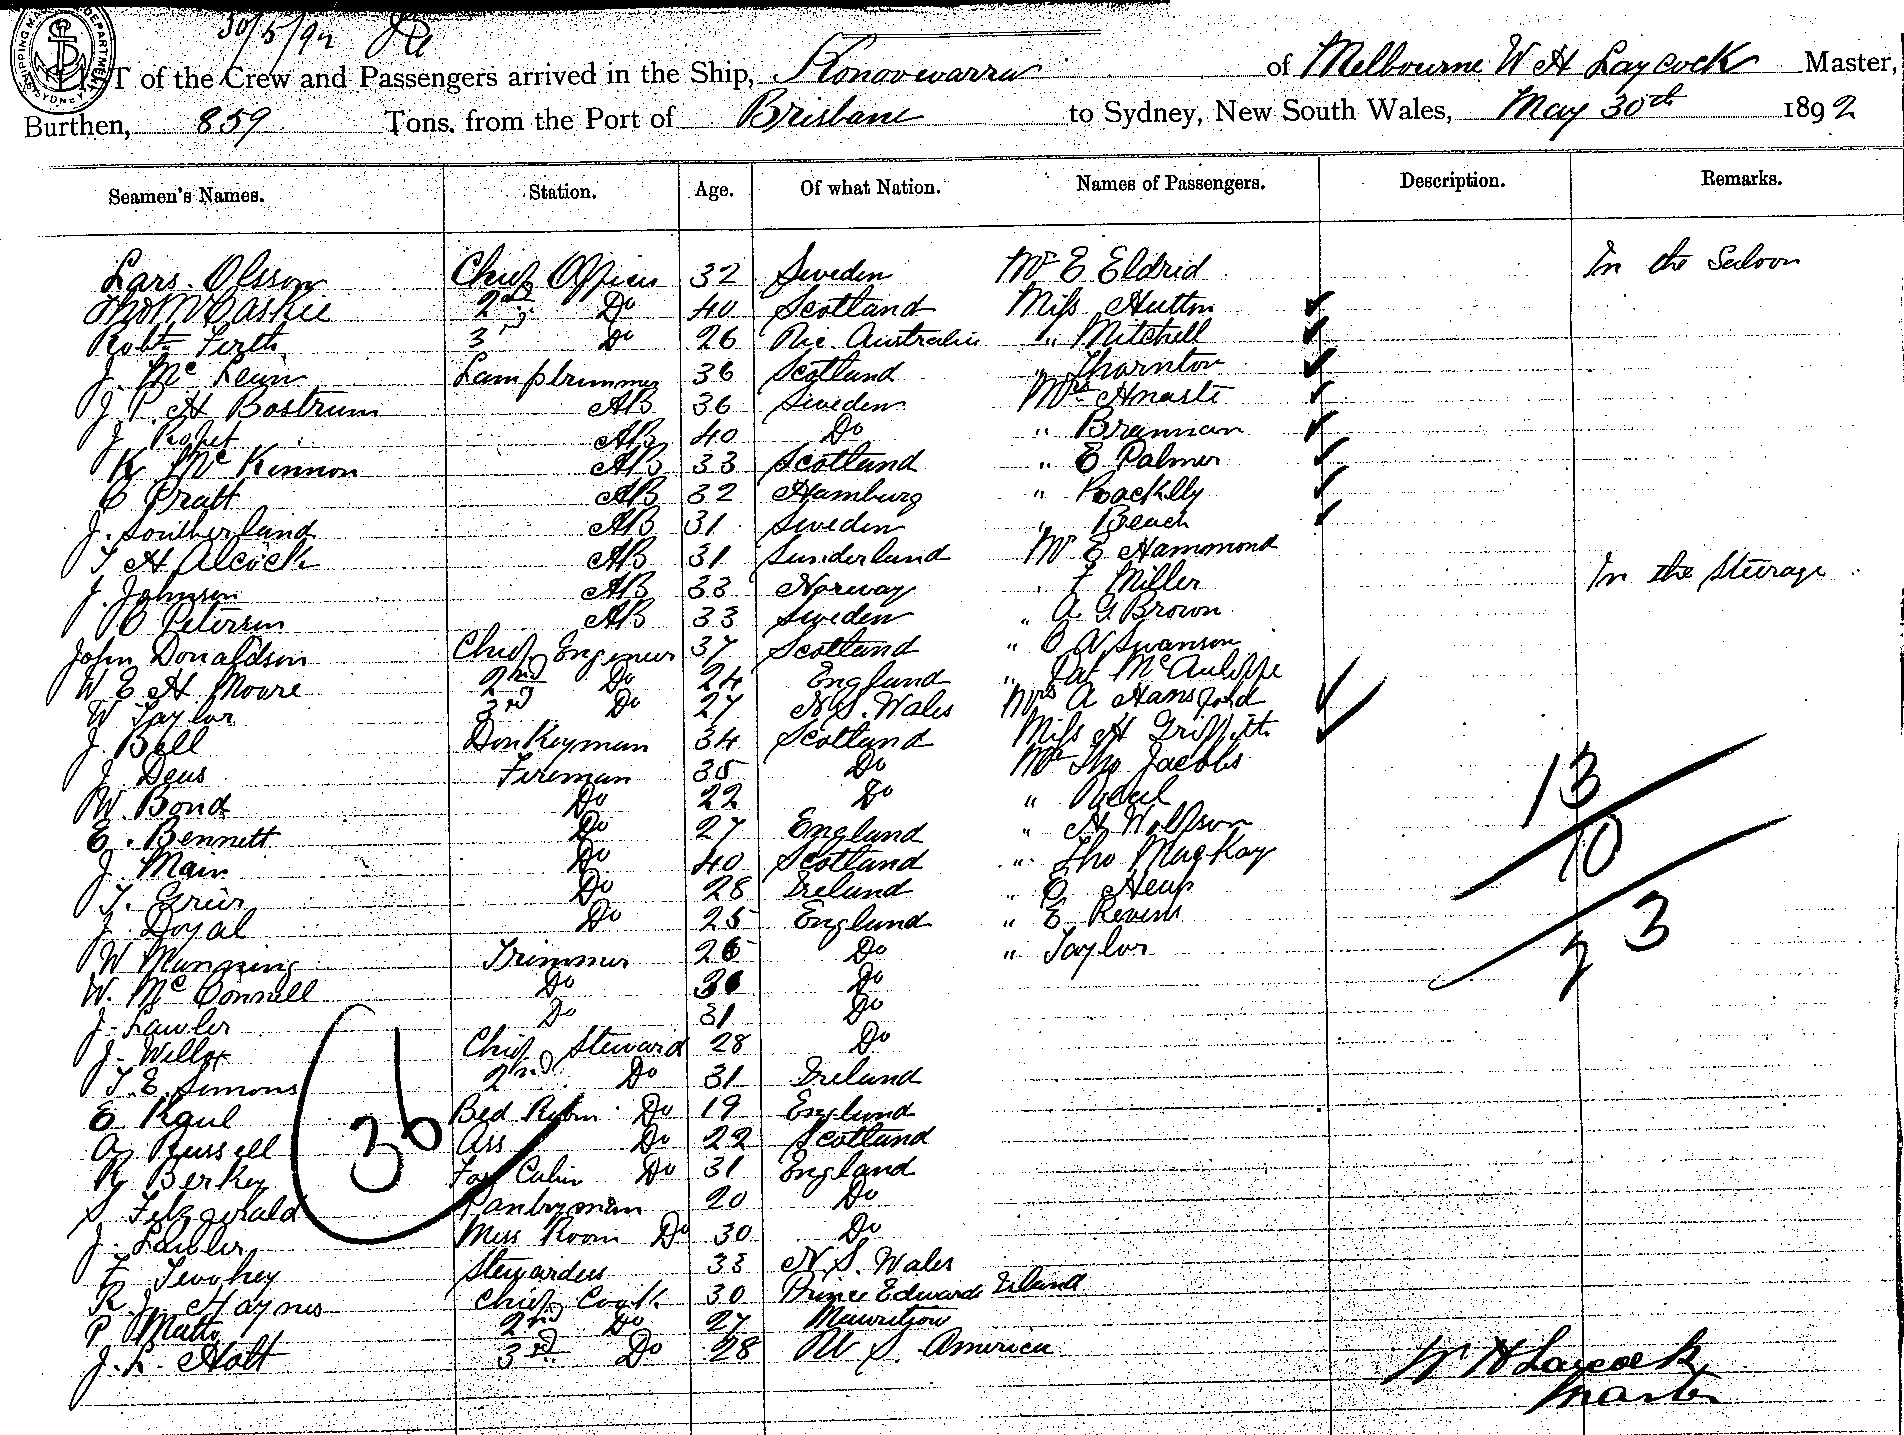 30/5/92
SHIPPING MASTER'S DEPARTMENT SYDNEY
LIST of the Crew and Passengers arrived in the Ship, Konoowarra of Melbourne W H Laycock Master,
Burthen, 859 Tons. from the Port of Brisbane to Sydney, New South Wales, May 30th 1892
Seamen's Names. Station. Age. Of what Nation. Names of Passengers. Description. Remarks.
Lars. Olsson Chief Officer 32 Sweden Mr E Eldrid In the Saloon
Tho McCaskie 2nd Do 40 Scotland Miss Hutton
Robt Firth 3rd Do 26 Vic. Australia " Mitchell
J. Mc Lean Lamptrimmer 36 Scotland " Thornton
J P H Bostrum AB 36 Sweden Mrs
J. AB 40 Do " Brennan
K Mc Kennon AB 33 Scotland " E Palmer
C Pratt AB 32 Hamburg " Rocklly
J. Southerland AB 31 Sweden " Beach
T H Alcock AB 31 Sunderland Mr E Hammond
J. Johnson AB 33 Norway " F Miller In the Steerage
C Peterson AB 33 Sweden " A G Brown
John Donaldson Chief Engineer 37 Scotland " Swanson
W E H Moore 2nd Do 24 England " Pat McAuliffe
W Taylor 3rd Do 27 N. S. Wales Mrs A Hansford
J. Bell Donkeyman 34 Scotland Miss H Griffith
J Deus Fireman 35 Do Mr Tho Jacobs
W. Bond Do 22 Do "
E. Bennett Do 27 England " H
J. Main Do 40 Scotland " Tho MacKay
T. Grier Do 28 Ireland " Heap
J. Doyal Do 25 England " E
W Manning Trimmer 26 Do " Taylor
W. Mc Connell Do 36 Do
J. Lawler Do 31 Do
J. Willox Chief Steward 28 Do
T. E. Simons 2nd Do 31 Ireland
E Kaul Bed Room Do 19 England
A Russell Ass Do 22 Scotland
R Berkey Fore Cabin Do 31 England
S Fitzgerald Pantryman 20 Do
J. Lawler Mess Room Do 30 Do
Stewardess 33 N. S. Wales
R. J. Haynes Chief Cook 30 Prince Edwards Island
P Matto 2nd Do 27
J. L. Holt 3rd Do 28 S. America
36
13
10
23
W H Laycock
Master